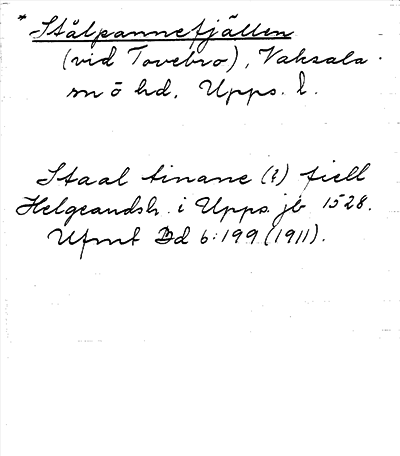 * Stålpannefjällen
(vid Tovebro), Vaksala
sn o hd. Upps. l.
Staal tinane (?) fiell
Helgeandsh. i Upps. jb 1528.
Ufmt Bd 6:199 (1911).